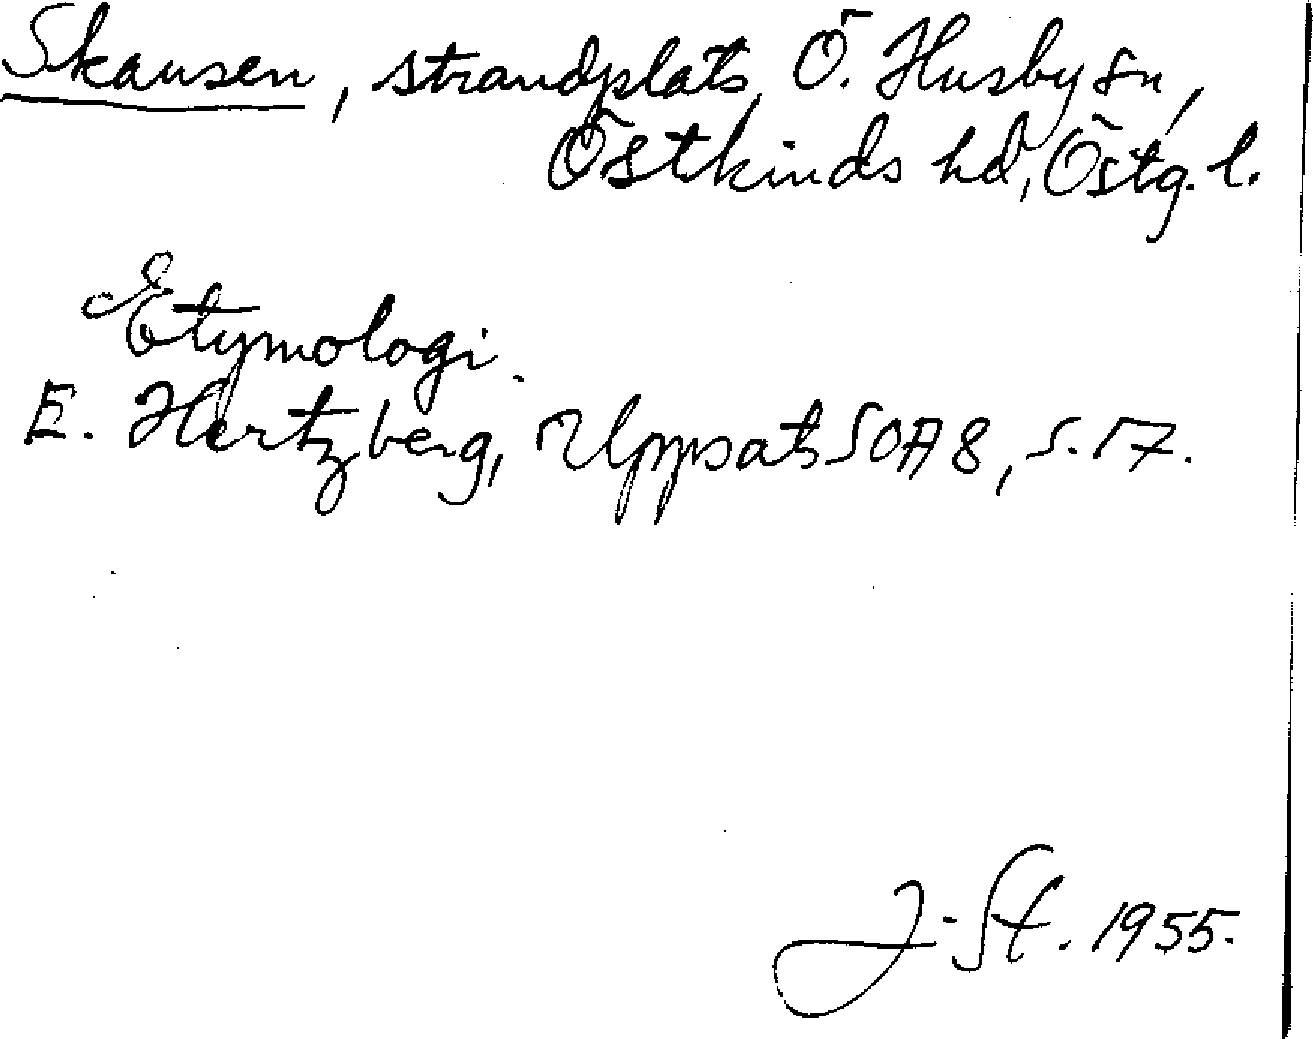 Skausen, strandplats, Ö. Husby sn,
Östkinds hd, Östg. l.
Etymologi.
E. Hertzberg, Uppsats SOA 8, s. 17.
J-St. 1955.